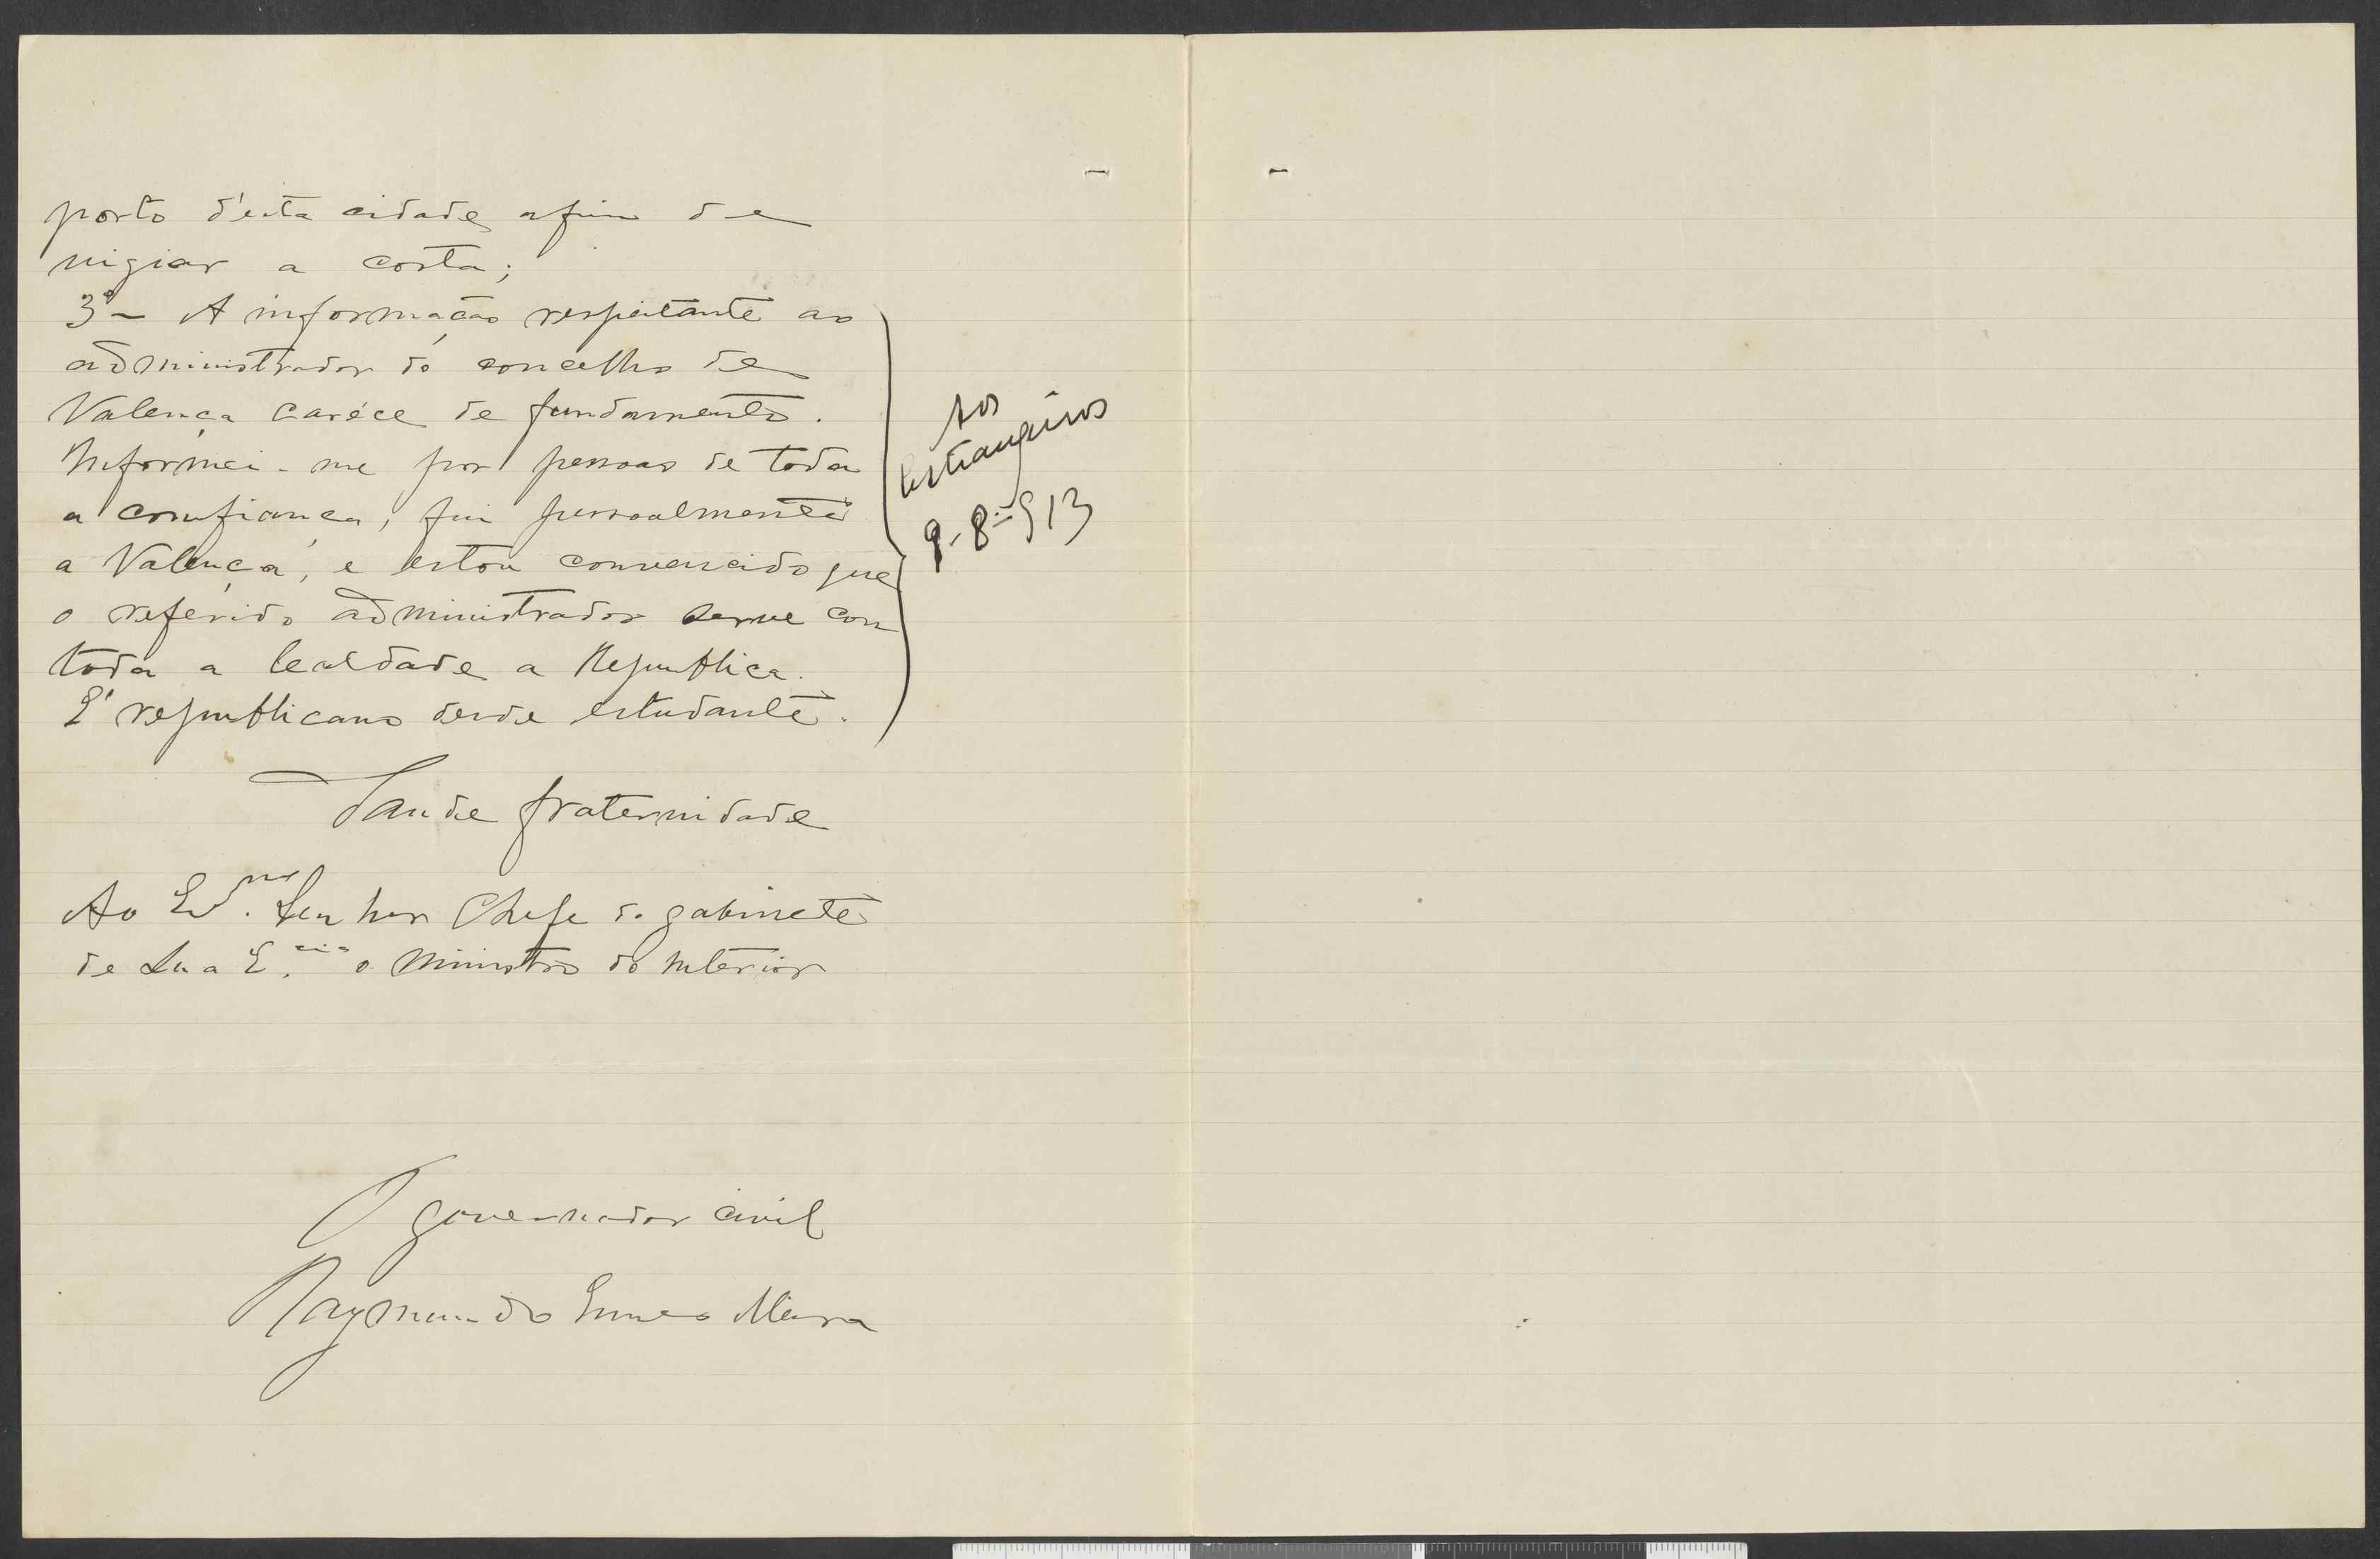 porto d'esta cidade, afim de
vigiar a costa;
3º - A informação respeitante ao
administrador do concelho de
Valença caréce de fundamento.
Informei-me por pessoas de toda
a confiança, fui pessoalmente
a Valença, e estou convencido que
o referido administrador serve com
toda a lealdade a Republica.
E' republicano desde estudante.
Aos
Estrangeiros
9-8-913
Saude fraternidade
Ao Ex.mo Senhor Chefe do gabinete
de Sua E.cia o Ministro do Interior
O governador civil
Raymundo Meira